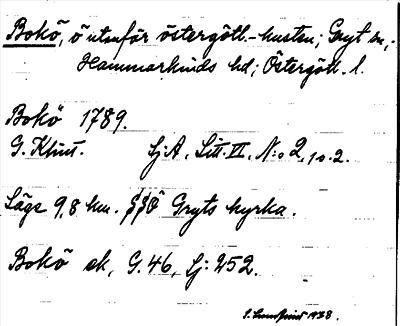 Bokö, ö utanför östergötl.-kusten; Gryt sn,;
Hammarkinds hd; Östergötl. l.
Bokö 1789.
G. Klint. Sj:A, Litt. II, N:o 2, p. 2.
Läge 9,8 km. SSÖ Gryts kyrka.
Bokö ek, G. 46, Sj: 252.
1938.